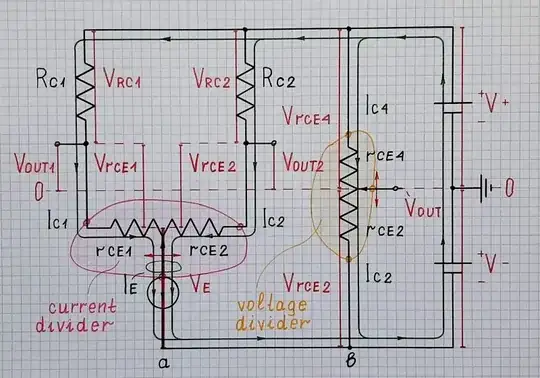 RC1
VRC1
VRC2
RC2
VrCE4
IC4
+
V+
-
rCE4
VOUT1
VrCE1
VrCE2
VOUT2
0
VOUT
0
IC1
IC2
rCE2
rCE1
rCE2
IE
VE
VrCE2
IC2
+
V-
-
current
divider
voltage
divider
a
b